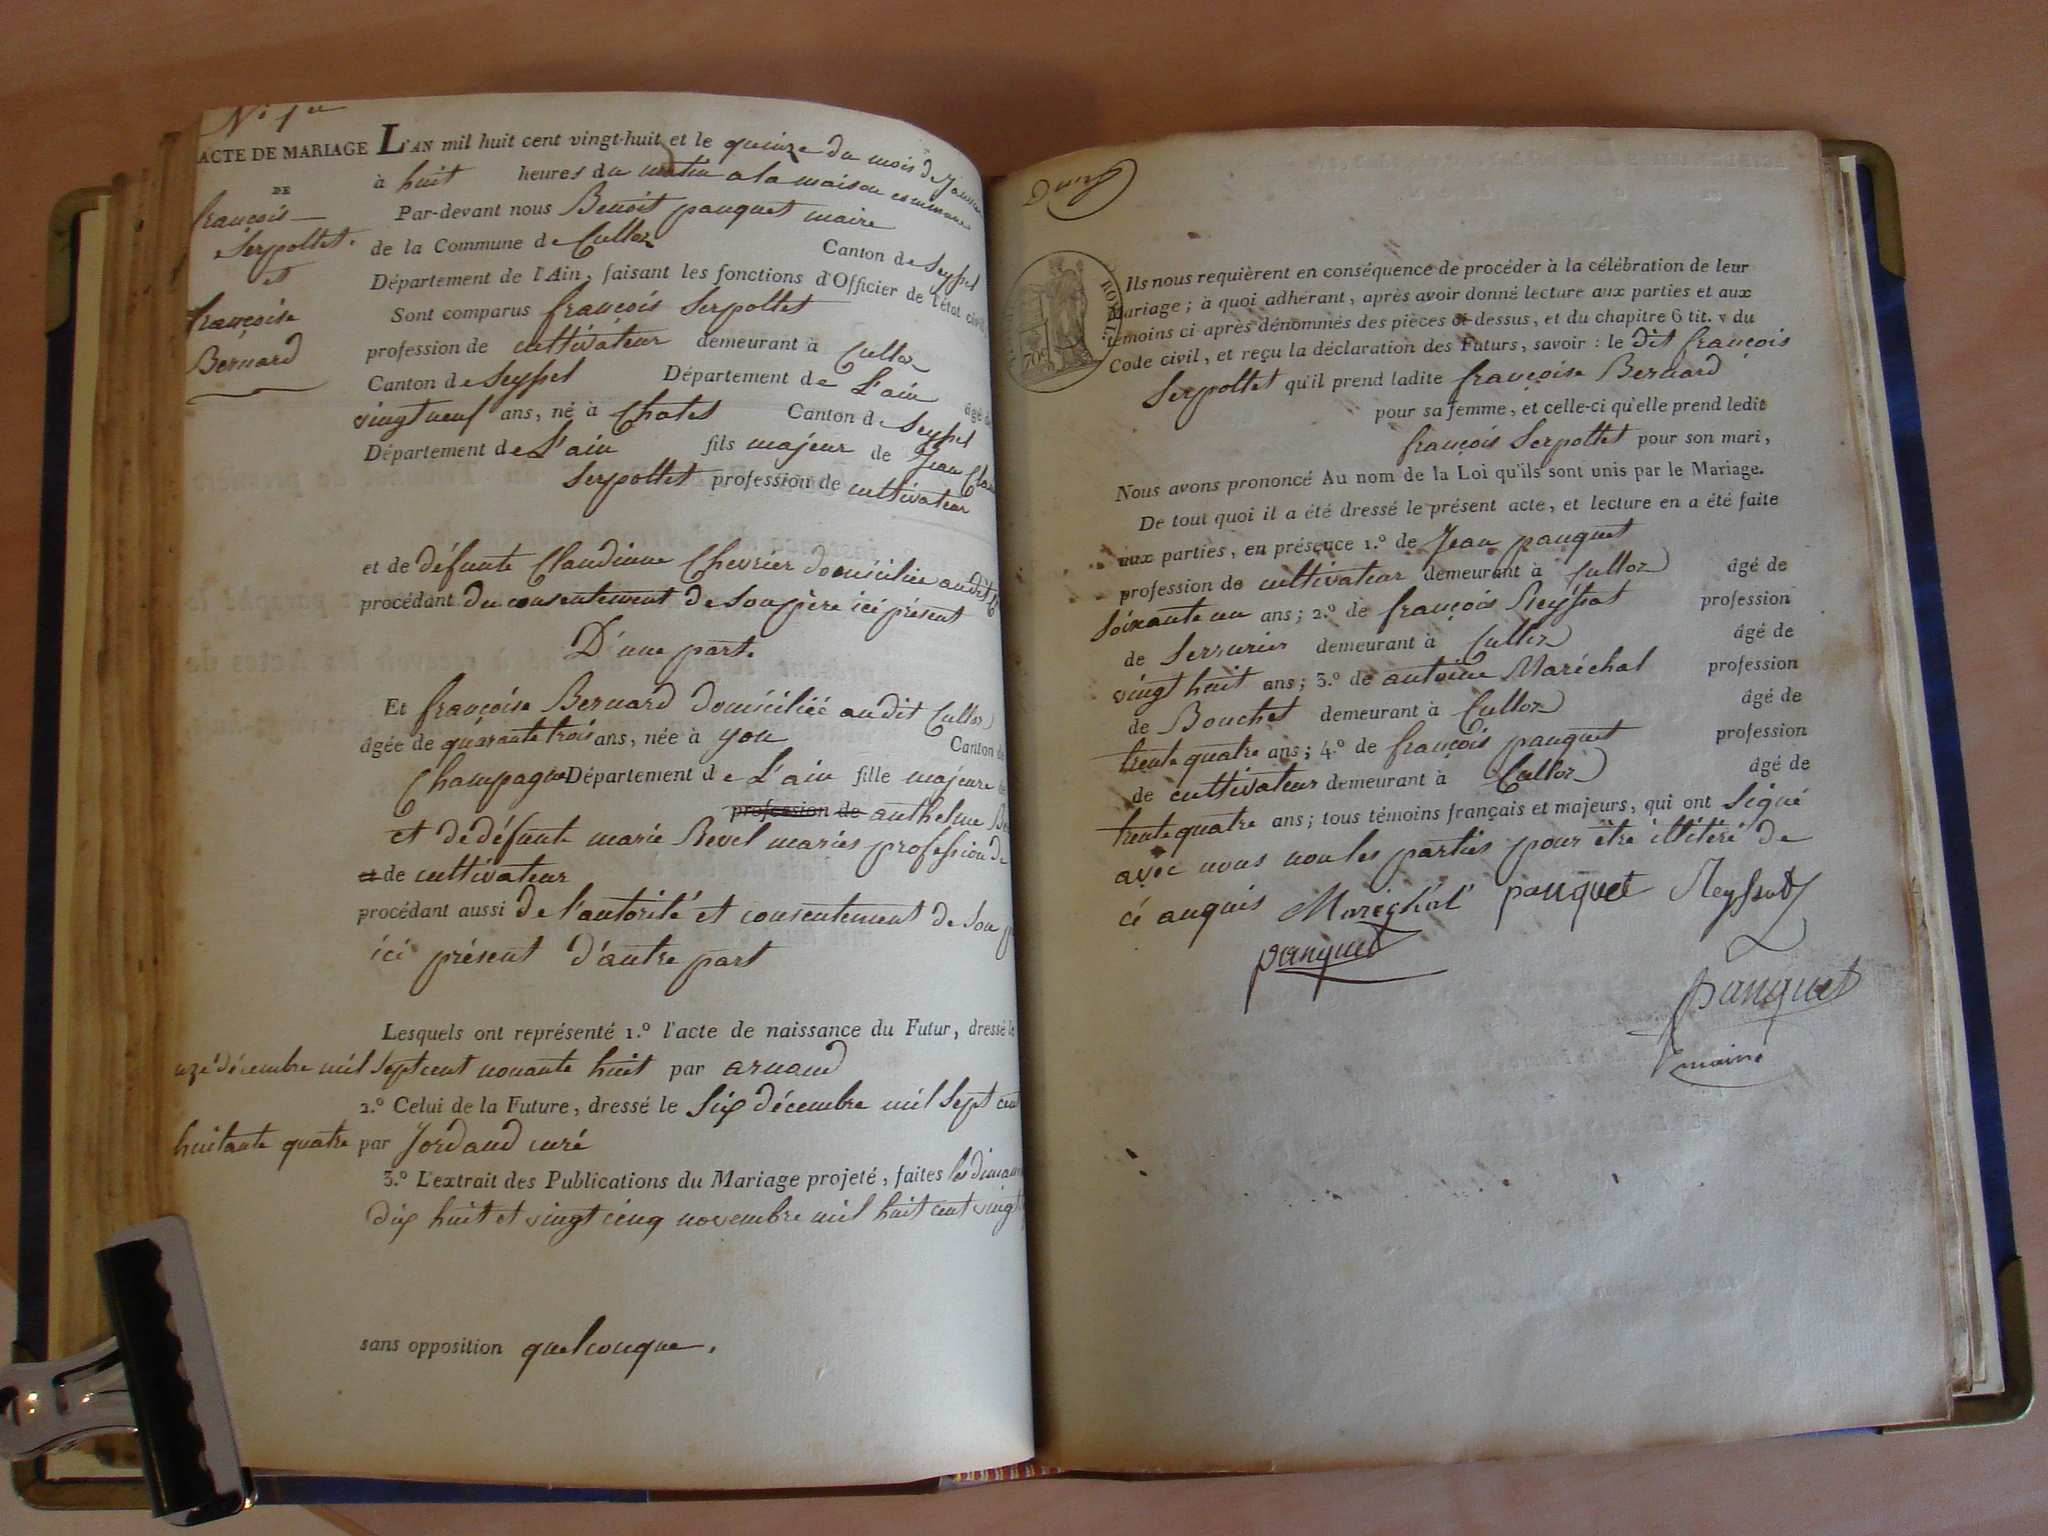 N° 1er
ACTE DE MARIAGE
DE
françois
Serpollet.
et
françoise
Bernard
L'AN mil huit cent vingt-huit et le quinze du mois de Janvier
à huit heures du matin a la maison commune
Par-devant nous Benoit pauquet maire
de la Commune de Culloz Canton de Seyssel
Département de l'Ain, faisant les fonctions d'Officier de l'état civil
Sont comparus françois Serpollet
profession de cultivateur demeurant à Culloz
Canton de Seyssel Département de L'ain âgé de
vingt neuf ans, né à Chatel Canton de Seyssel
Département de L'ain fils majeur de Jean
Serpollet profession de cultivateur
et de défunte Claudinne Chevrier domiciliée audit
procédant du consentement de son père ici présent
D'une part.
Et françoise Bernard domiciliée audit Culloz
âgée de quarante trois ans, née à yon Canton de
Champagne Département de L'ain fille majeure
profession de anthelme
et de défunte marie Revel mariés profession de
et de cultivateur
procédant aussi de l'autorité et consentement de son
ici présent d'autre part
Lesquels ont représenté 1.° l'acte de naissance du Futur, dressé le
décembre mil Sept cent nonante huit par arnaud
2.° Celui de la Future, dressé le Six décembre mil Sept cent
huitante quatre par Jordand curé
3.° L'extrait des Publications du Mariage projeté, faites les
dix huit et vingt cinq novembre mil huit cent vingt
sans opposition quelconque.
ROYAL
70c
Ils nous requièrent en conséquence de procéder à la célébration de leur
Mariage; à quoi adhérant, après avoir donné lecture aux parties et aux
témoins ci après dénommés des pièces ci-dessus, et du chapitre 6 tit. v du
Code civil, et reçu la déclaration des Futurs, savoir: le dit françois
Serpollet qu'il prend ladite françoise Bernard
pour sa femme, et celle-ci qu'elle prend ledit
françois Serpollet pour son mari,
Nous avons prononcé Au nom de la Loi qu'ils sont unis par le Mariage.
De tout quoi il a été dressé le présent acte, et lecture en a été faite
aux parties, en présence 1.° de Jean pauquet
profession de cultivateur demeurant à Culloz âgé de
soixante un ans; 2.° de françois Reyssat profession
de Serrurier demeurant à Culloz âgé de
vingt huit ans; 3.° de antoine Maréchal profession
de Bouchet demeurant à Culloz âgé de
trente quatre ans; 4.° de françois pauquet profession
de cultivateur demeurant à Culloz âgé de
trente quatre ans; tous témoins français et majeurs, qui ont Signé
avec nous non les parties pour être illitéré de
ce anquis Maréchal pauquet Reyssat
pauquet
pauquet
maire